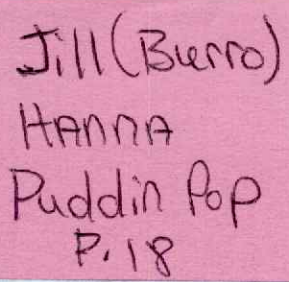 Jill (Burro)
HANNA
Puddin Pop
P. 18